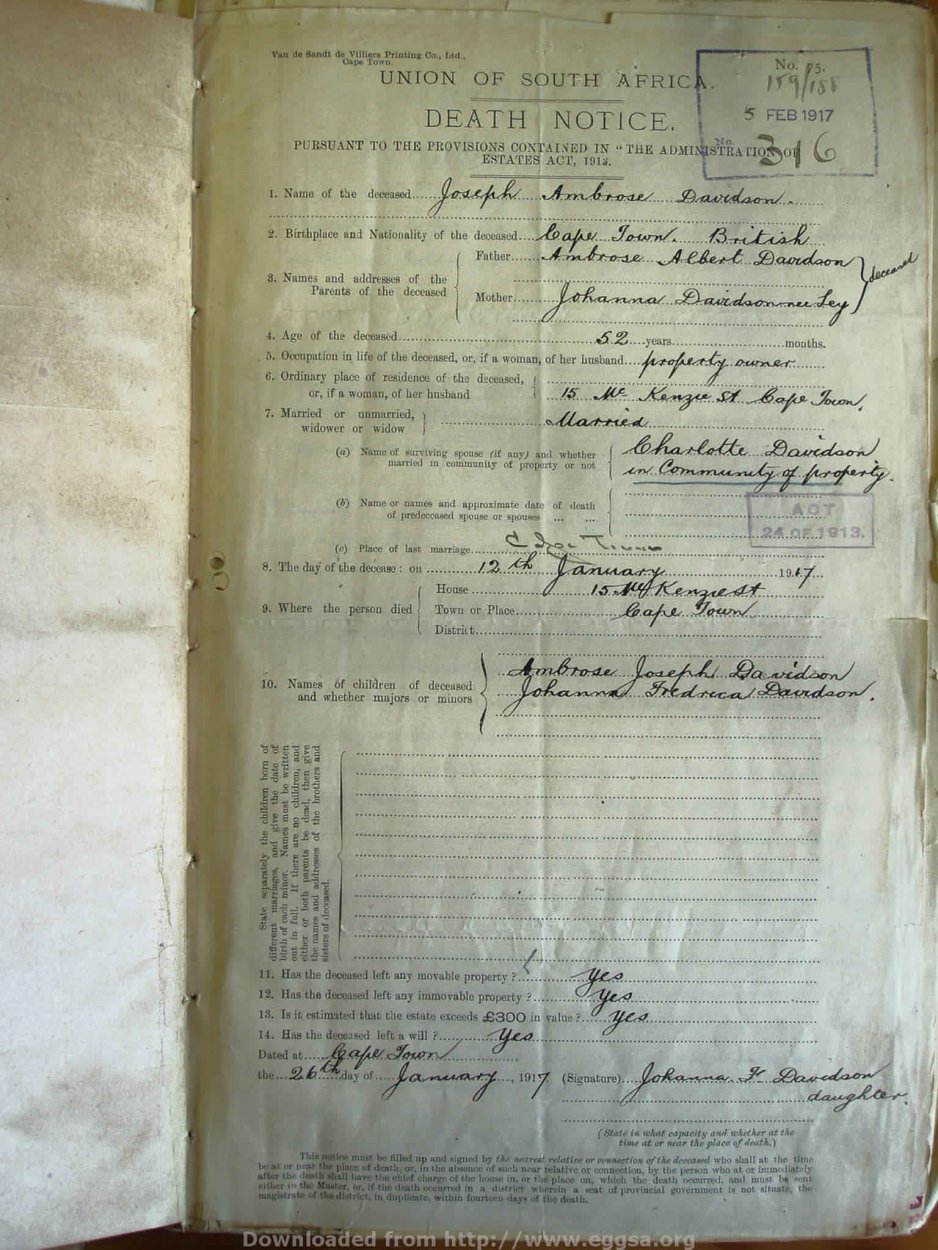 Van de Sandt de Villiers Printing Co., Ltd.,
Cape Town.
UNION OF SOUTH AFRICA.
No.
5 FEB 1917
No. 316
DEATH NOTICE.
PURSUANT TO THE PROVISIONS CONTAINED IN "THE ADMINISTRATION OF
ESTATES ACT, 1913.
1. Name of the deceased Joseph Ambrose Davidson.
2. Birthplace and Nationality of the deceased Cape Town. British
3. Names and addresses of the Parents of the deceased
Father Ambrose Albert Davidson
Mother Johanna Davidson nee Ley
deceased
4. Age of the deceased 52 years months.
5. Occupation in life of the deceased, or, if a woman, of her husband property owner
6. Ordinary place of residence of the deceased,
or, if a woman, of her husband 15 Mc Kenzie St Cape Town.
7. Married or unmarried,
widower or widow Married
(a) Name of surviving spouse (if any) and whether Charlotte Davidson
married in community of property or not in Community of property.
(b) Name or names and approximate date of death
of predeceased spouse or spouses ... ...
ACT
24 OF 1913.
(c) Place of last marriage Cape Town
8. The day of the decease: on 12th January 1917
9. Where the person died
House 15 Mc Kenzie St
Town or Place Cape Town
District
10. Names of children of deceased Ambrose Joseph Davidson
and whether majors or minors Johanna Fredrica Davidson.
State separately the children born of
different marriages, and give the date of
birth of each minor. Names must be written
out in full. If there are no children, and
either or both parents be dead, then give
the names and addresses of the brothers and
sisters of deceased.
11. Has the deceased left any movable property? yes
12. Has the deceased left any immovable property? yes
13. Is it estimated that the estate exceeds £300 in value? yes
14. Has the deceased left a will? yes
Dated at Cape Town
the 26th day of January, 1917 (Signature) Johanna F Davidson
daughter.
(State in what capacity and whether at the
time at or near the place of death.)
This notice must be filled up and signed by the nearest relative or connection of the deceased who shall at the time
be at or near the place of death, or, in the absence of such near relative or connection, by the person who at or immediately
after the death shall have the chief charge of the house in, or the place on, which the death occurred, and must be sent
either to the Master, or, if the death occurred in a district wherein a seat of provincial government is not situate, the
magistrate of the district, in duplicate, within fourteen days of the death.
Downloaded from http://www.eggsa.org